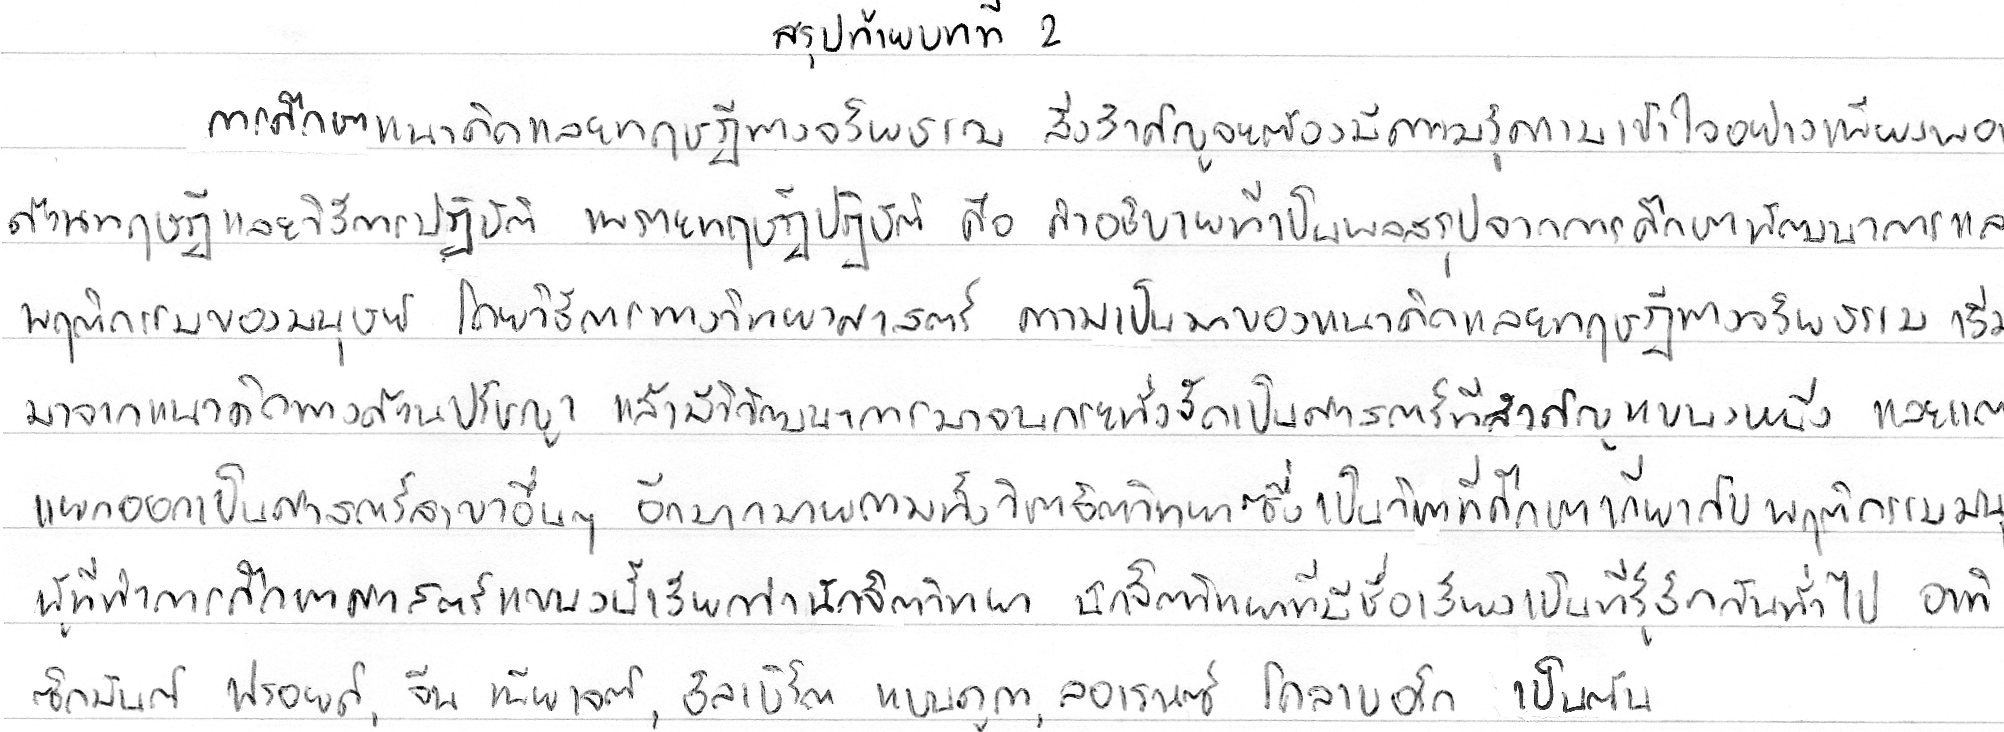 สรุปท้ายบทที่ 2
การศึกษาแนวคิดและทฤษฎีทางจริยธรรม สิ่งสำคัญจะต้องมีความรู้ความเข้าใจอย่างเพียงพอ
ด้านทฤษฎีและวิธีการปฏิบัติ เพราะทฤษฎีปฏิบัติ คือ คำอธิบายที่เป็นผลสรุปจากการศึกษาพัฒนาการและ
พฤติกรรมของมนุษย์ โดยวิธีการทางวิทยาศาสตร์ ความเป็นมาของแนวคิดและทฤษฎีทางจริยธรรม เริ่ม
มาจากแนวคิดทางด้านปรัชญา แล้วมีวิวัฒนาการมาจนกระทั่งจัดเป็นศาสตร์ที่สำคัญแขนงหนึ่ง และแตก
แยกออกเป็นศาสตร์สาขาอื่นๆ อีกมากมายตามทั้งวิชาจิตวิทยาซึ่งเป็นวิชาที่ศึกษาเกี่ยวกับพฤติกรรมมนุ
ผู้ที่ทำการศึกษาศาสตร์แขนงนี้เรียกว่านักจิตวิทยา นักจิตวิทยาที่มีชื่อเสียงเป็นที่รู้จักกันทั่วไป อาทิ
ซิกมันด์ ฟรอยด์, จีน เพียเจต์, อัลเบิร์ต แบนดูรา, ลอเรนซ์ โคลเบอร์ก เป็นต้น